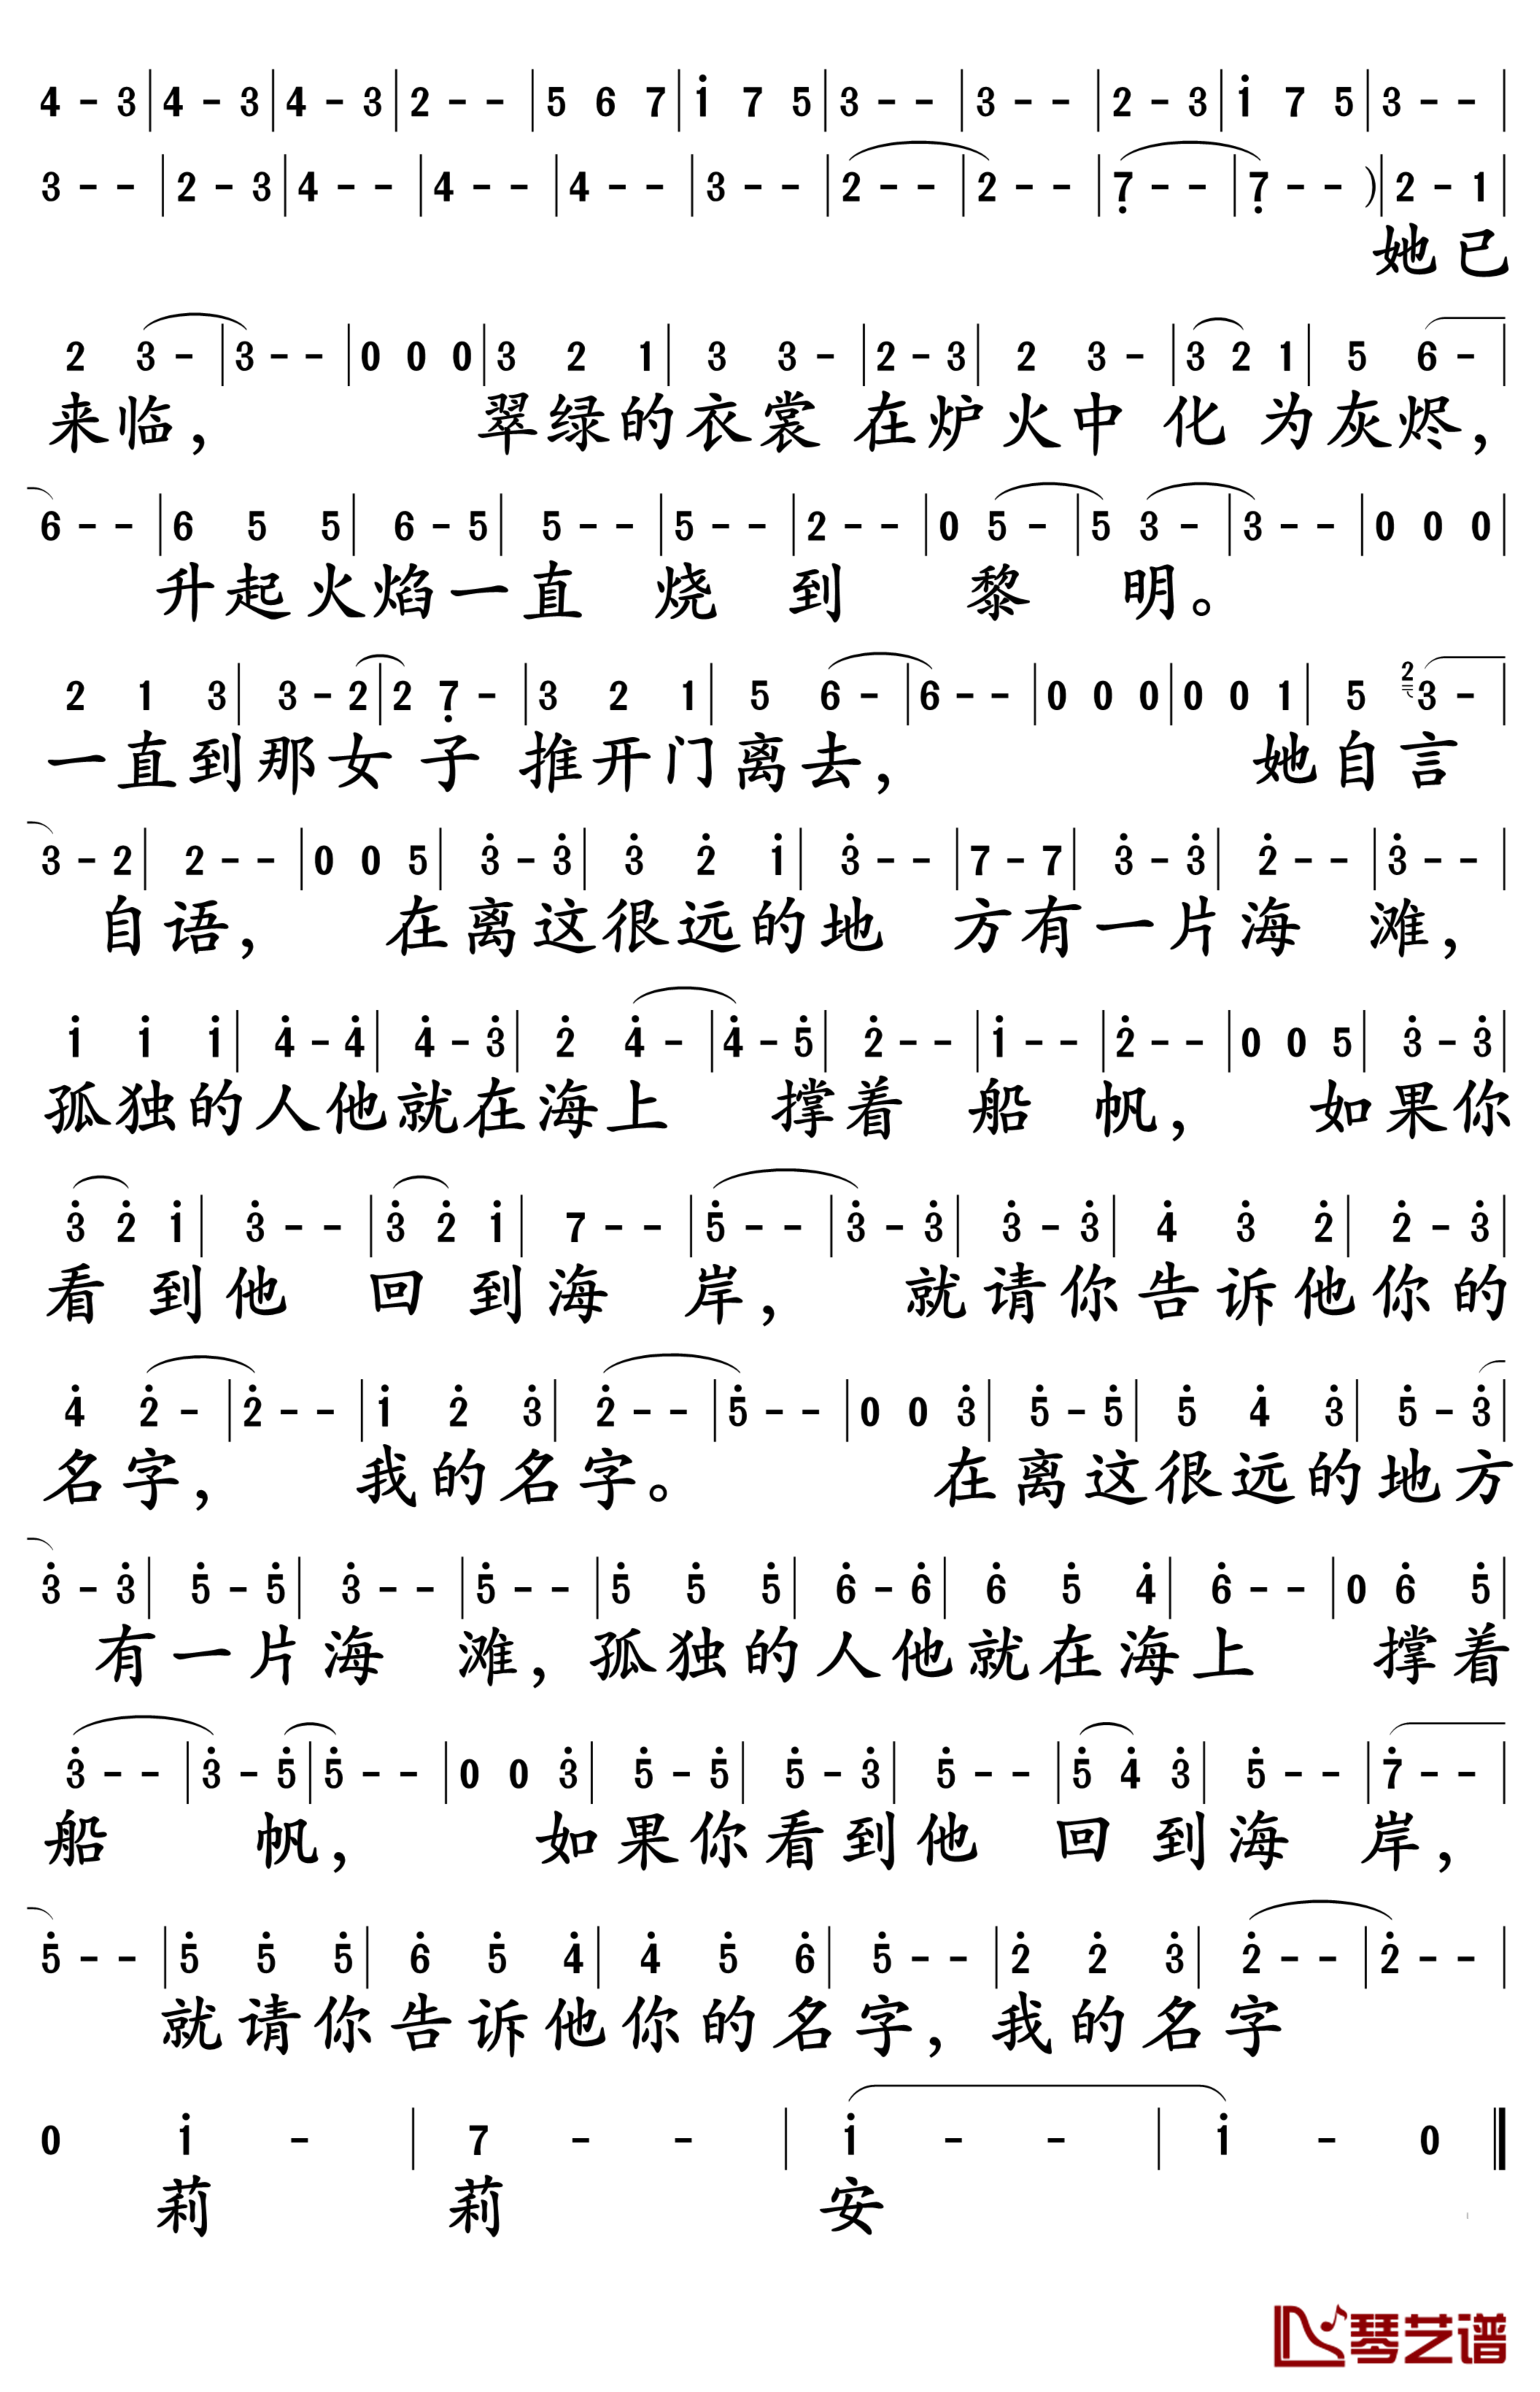 4 - 3 | 4 - 3 | 4 - 3 | 2 - - | 5 6 7 | i̇ 7 5 | 3 - - | 3 - - | 2 - 3 | i̇ 7 5 | 3 - - |
3 - - | 2 - 3 | 4 - - | 4 - - | 4 - - | 3 - - | 2 - - | 2 - - | 7̣ - - | 7̣ - - ) | 2 - 1 |
她已
2 3 - | 3 - - | 0 0 0 | 3 2 1 | 3 3 - | 2 - 3 | 2 3 - | 3 2 1 | 5 6 - |
来临， 翠绿的衣裳 在炉火中 化 为灰烬，
6 - - | 6 5 5 | 6 - 5 | 5 - - | 5 - - | 2 - - | 0 5 - | 5 3 - | 3 - - | 0 0 0 |
升起火焰一直 烧 到 黎 明。
2 1 3 | 3 - 2 | 2 7̣ - | 3 2 1 | 5 6 - | 6 - - | 0 0 0 | 0 0 1 | 5 2 3 - |
一直到那女 子 推开门离去， 她自言
3 - 2 | 2 - - | 0 0 5 | 3̇ - 3̇ | 3̇ 2̇ i̇ | 3̇ - - | 7 - 7 | 3̇ - 3̇ | 2̇ - - | 3̇ - - |
自语， 在离这很远的地 方有一片海 滩，
i̇ i̇ i̇ | 4̇ - 4̇ | 4̇ - 3̇ | 2̇ 4̇ - | 4̇ - 5̇ | 2̇ - - | i̇ - - | 2̇ - - | 0 0 5 | 3̇ - 3̇ |
孤独的人他就在海上 撑着 船 帆， 如果你
3̇ 2̇ i̇ | 3̇ - - | 3̇ 2̇ i̇ | 7 - - | 5̇ - - | 3̇ - 3̇ | 3̇ - 3̇ | 4̇ 3̇ 2̇ | 2̇ - 3̇ |
看 到他 回 到海 岸， 就请你告诉他你的
4̇ 2̇ - | 2̇ - - | i̇ 2̇ 3̇ | 2̇ - - | 5̇ - - | 0 0 3̇ | 5̇ - 5̇ | 5̇ 4̇ 3̇ | 5̇ - 3̇ |
名字， 我的名字。 在离这很远的地方
3̇ - 3̇ | 5̇ - 5̇ | 3̇ - - | 5̇ - - | 5̇ 5̇ 5̇ | 6̇ - 6̇ | 6̇ 5̇ 4̇ | 6̇ - - | 0 6̇ 5̇ |
有一片海 滩，孤独的人他就在海上 撑着
3̇ - - | 3̇ - 5̇ | 5̇ - - | 0 0 3̇ | 5̇ - 5̇ | 5̇ - 3̇ | 5̇ - - | 5̇ 4̇ 3̇ | 5̇ - - | 7̇ - - |
船 帆， 如果你看到他 回 到海 岸，
5̇ - - | 5̇ 5̇ 5̇ | 6̇ 5̇ 4̇ | 4̇ 5̇ 6̇ | 5̇ - - | 2̇ 2̇ 3̇ | 2̇ - - | 2̇ - - |
就请你告诉他你的名字，我的名字
0 i̇ - | 7 - - | i̇ - - | i̇ - 0 ‖
莉 莉 安
琴艺谱